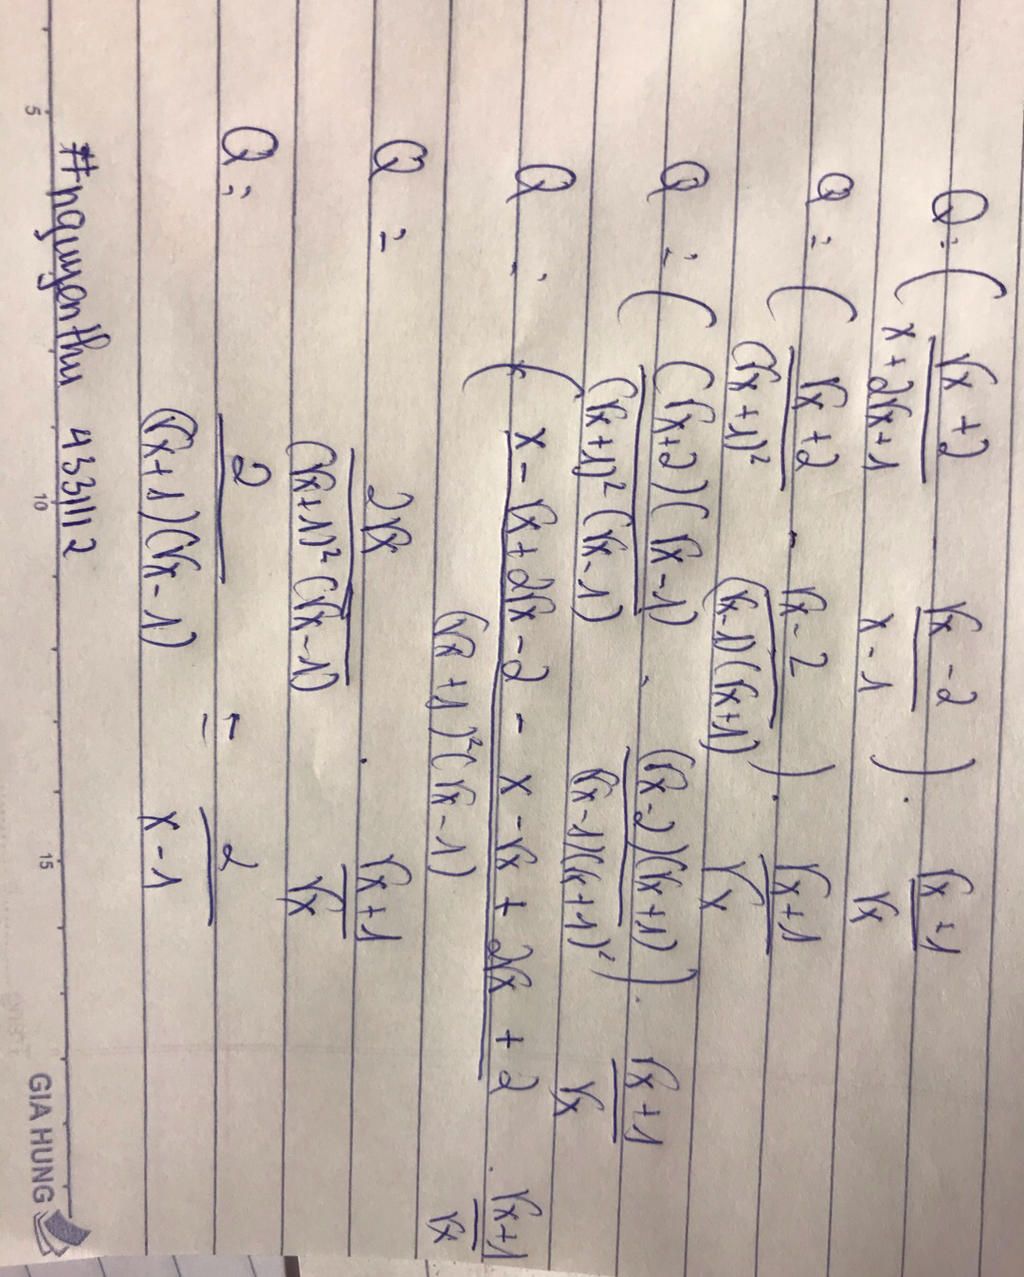 Q = ( √x + 2 / x + 2√x + 1 - √x - 2 / x - 1 ) . √x + 1 / √x
Q = ( √x + 2 / (√x + 1)² - √x - 2 / (√x - 1)(√x + 1) ) . √x + 1 / √x
Q = ( (√x + 2)(√x - 1) / (√x + 1)² (√x - 1) - (√x - 2)(√x + 1) / (√x - 1)(√x + 1)² ) . √x + 1 / √x
Q = ( x - √x + 2√x - 2 - x - √x + 2√x + 2 / (√x + 1)² (√x - 1) . √x + 1 / √x
Q = 2√x / (√x + 1)² (√x - 1) . √x + 1 / √x
Q = 2 / (√x + 1)(√x - 1) = 2 / x - 1
#nguyenthu 4331112
5 10 15 GIA HUNG